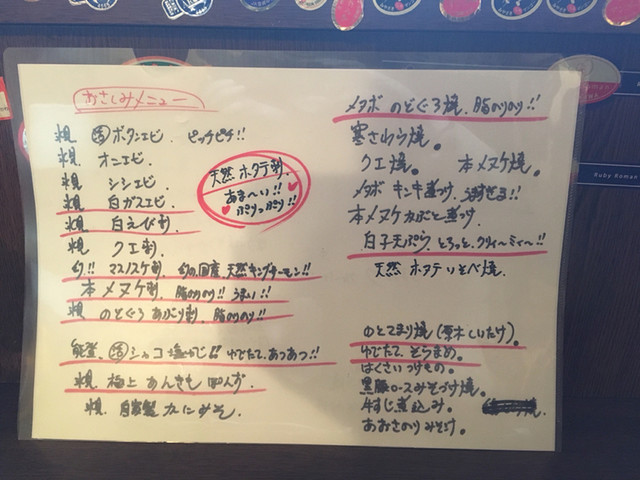 おさしみメニュー
㊋ボタンエビ. ピッチピチ!!
オニエビ.
シシエビ.
白ガスエビ.
白えび刺.
クエ刺.
幻!! マスノスケ刺. 幻の国産天然キングサーモン!!
本メヌケ刺. 脂のり!! うまい!!
のどぐろあぶり刺. 脂のり!!
能登. シャコ塩ゆじ!! ゆでたて、あつあつ!!
極上あんきも ぽんず
自家製かにみそ
天然ホタテ刺.
あま〜い!!
ぷりっぷり!!
メタボのどぐろ焼. 脂のりのり!!
寒さわら焼。
クエ焼。 本メヌケ焼。
メタボ キンキ煮つけ. うますぎる!!
本メヌケかぶと煮つけ.
白子天ぷら. とろっと、クリィーミィ〜!!
天然ホタテいそべ焼.
のとてまり焼(原木しいたけ)。
ゆでたて、そらまめ。
はくさいつけもの。
黒豚ロースみそづけ焼。
牛すじ煮込み。 焼。
あおさのりみそ汁。
Ruby Roman